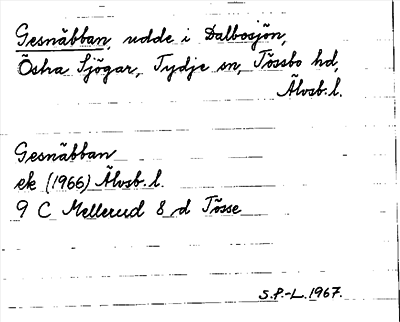 Gesnäbban, udde i Dalbosjön,
Östra Sjögar, Tydje sn, Tössbo hd,
Älvsb. l.
Gesnäbban
ek (1966) Älvsb. l.
9 C Mellerud 8 d Tösse
S.P.-L. 1967.